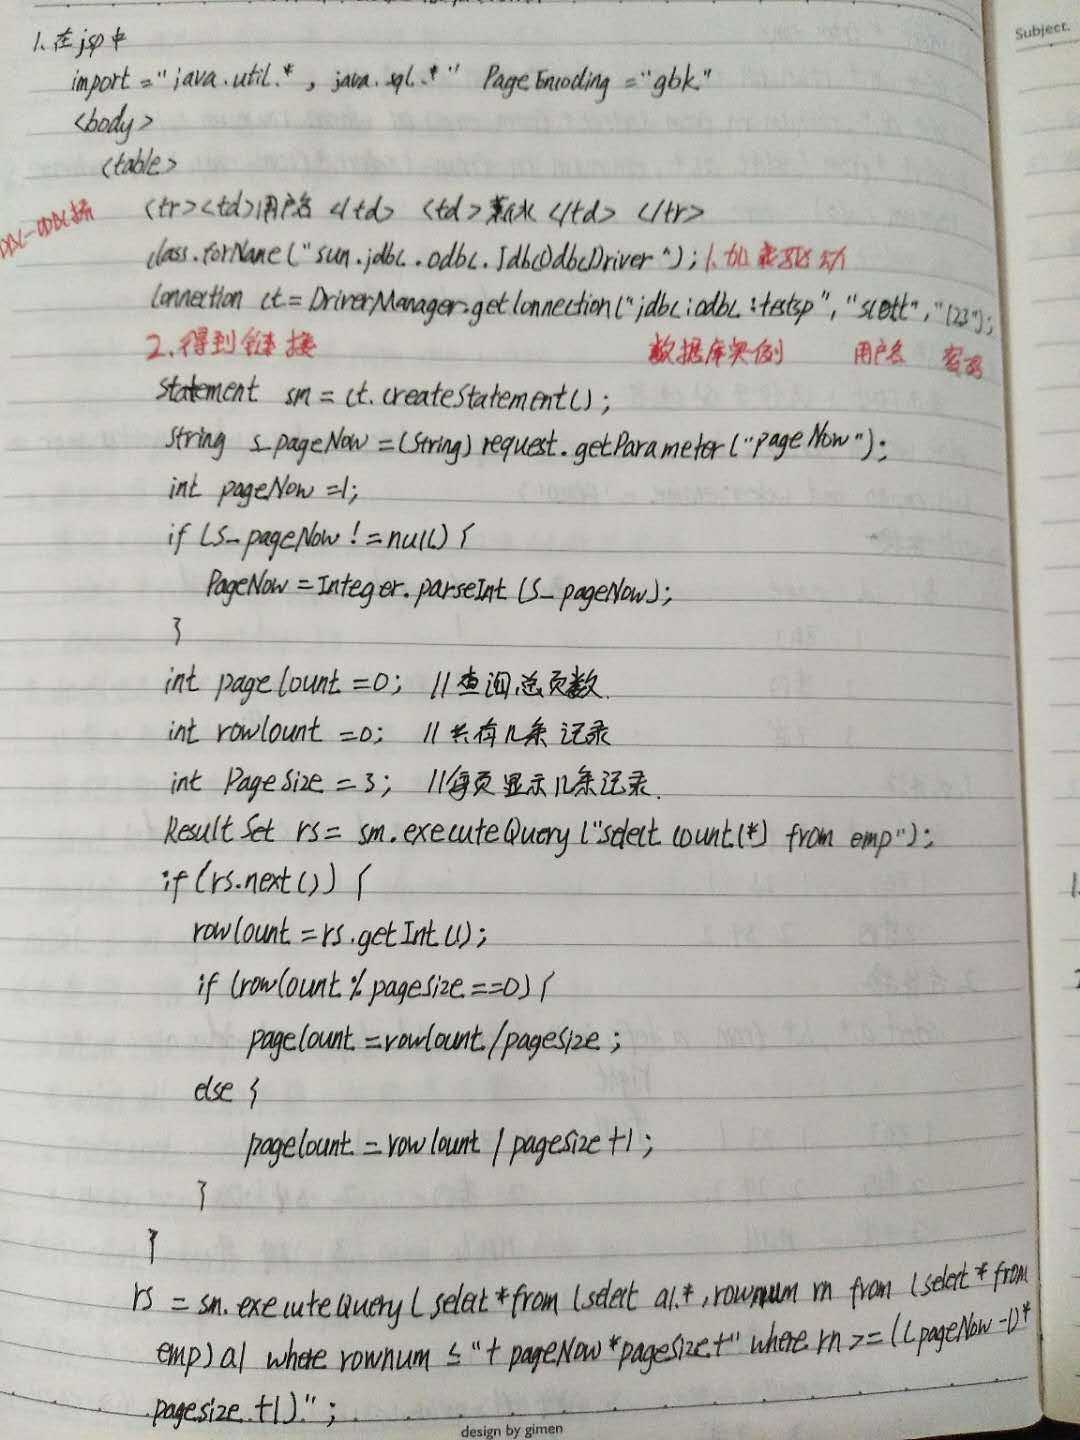 Subject.
1. 在jsp中
import = "java.util.* , java.sql.*" PageEncoding = "gbk"
<body>
<table>
<tr><td>用户名 </td> <td>薪水 </td> </tr>
class.forName("sun.jdbc.odbc.JdbcOdbcDriver"); 1.加载驱动
Connection ct = DriverManager.getConnection("jdbc:odbc:testsp", "scott", "123");
2.得到链接 数据库实例 用户名 密码
Statement sm = ct.createStatement();
String s_pageNow = (String) request.getParameter("pageNow");
int pageNow =1;
if (s_pageNow != null) {
PageNow = Integer.parseInt (s_pageNow);
}
int pageCount = 0; //查询总页数.
int rowCount = 0; //共有几条记录
int PageSize = 3; //每页显示几条记录.
ResultSet rs = sm.executeQuery ("select count(*) from emp");
if (rs.next()) {
rowCount = rs.getInt(1);
if (rowCount % pagesize == 0) {
pageCount = rowCount / pagesize ;
else {
pageCount = rowCount / pagesize +1 ;
}
}
rs = sm.executeQuery ( select * from (select a1.*, rownum rn from (select * from
emp) a1 where rownum ≤ "+ pageNow * pagesize +" where rn >= ((pageNow -1)*
pagesize +1)." ;
design by gimen